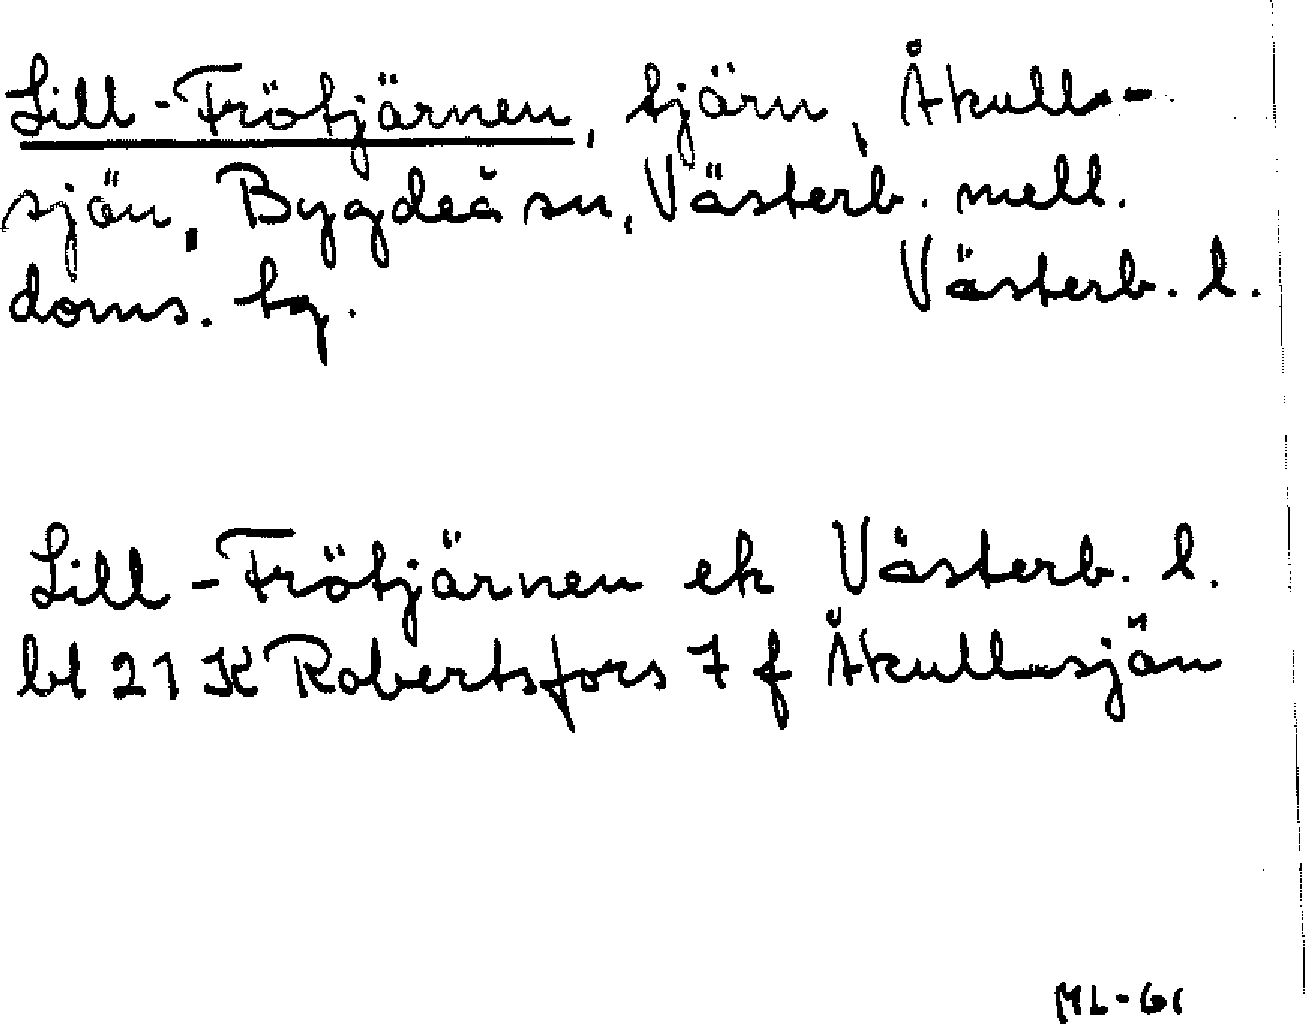 Lill-Frötjärnen, tjärn, Åkulls-
sjön, Bygdeå sn, Västerb. mell.
doms. tg. Västerb. l.
Lill-Frötjärnen ek Västerb. l.
bl 21 K Robertsfors 7 f Åkullsjön
ML-61